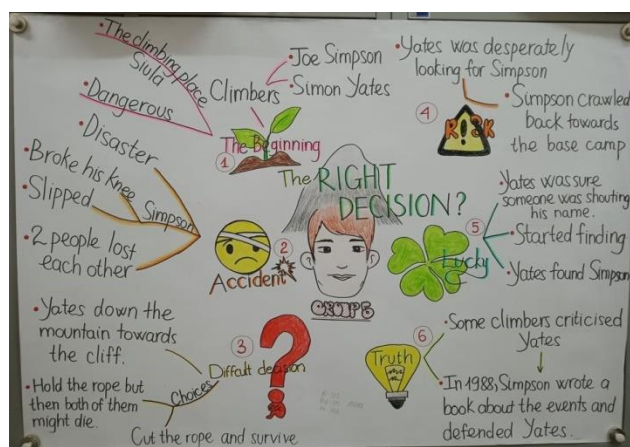 The RIGHT
DECISION?
GROUP 5
1
The Beginning
Climbers
• Joe Simpson
• Simon Yates
• The climbing place
Siula
• Dangerous
2
Accident
• Disaster
Simpson
• Broke his knee
• Slipped
• 2 people lost
each other
3
Difficult decision
• Yates down the
mountain towards
the cliff.
Choices
• Hold the rope but
then both of them
might die.
Cut the rope and survive
4
RISK
• Yates was desperately
looking for Simpson
• Simpson crawled
back towards
the base camp
5
Lucky
• Yates was sure
someone was shouting
his name.
• Started finding
• Yates found Simpson
6
Truth
• Some climbers criticised
Yates
• In 1988, Simpson wrote a
book about the events and
defended Yates.